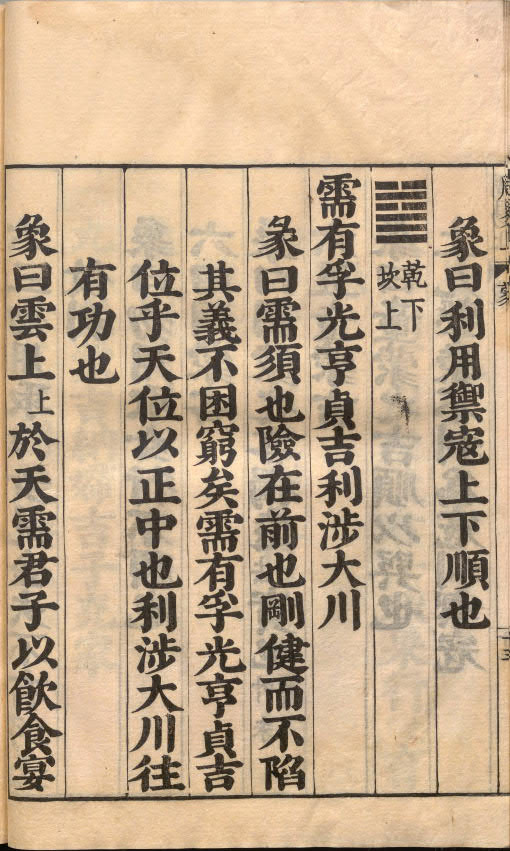 象曰利用禦寇上下順也
䷄
乾下
坎上
需有孚光亨貞吉利涉大川
彖曰需須也險在前也剛健而不陷
其義不困窮矣需有孚光亨貞吉
位乎天位以正中也利涉大川往
有功也
象曰雲上上於天需君子以飲食宴